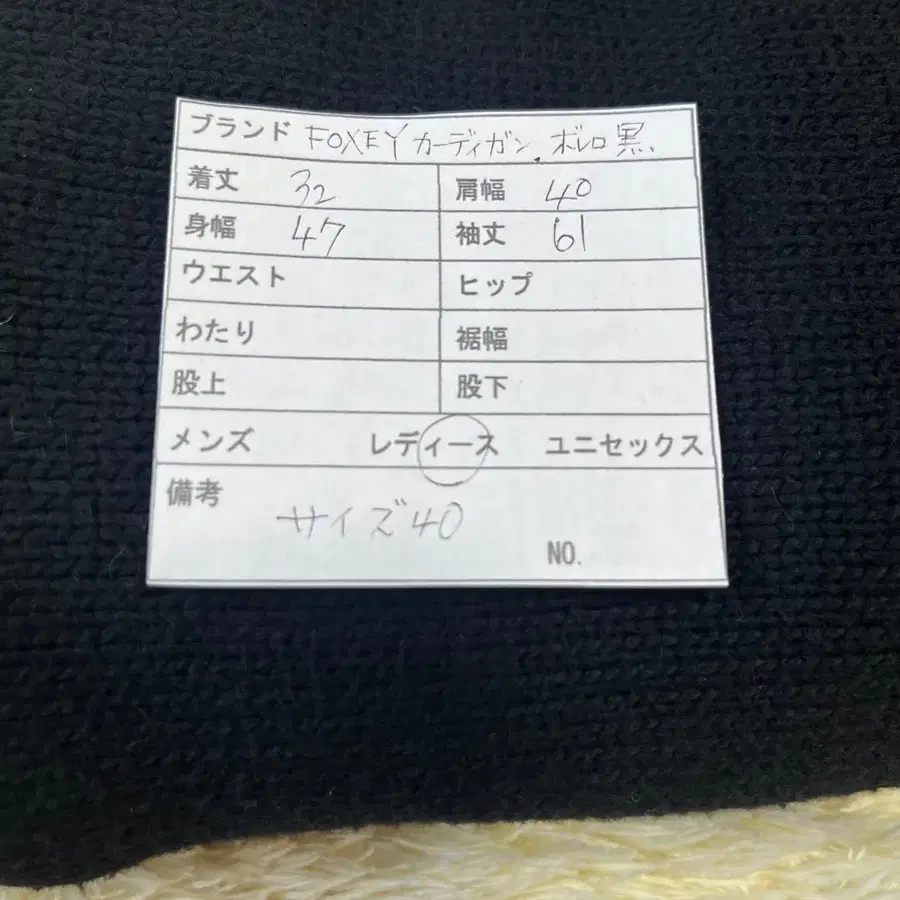 ブランド FOXEY カーディガン.ボレロ黒
着丈 32 肩幅 40
身幅 47 袖丈 61
ウエスト ヒップ
わたり 裾幅
股上 股下
メンズ レディース ユニセックス
備考
サイズ40
NO.